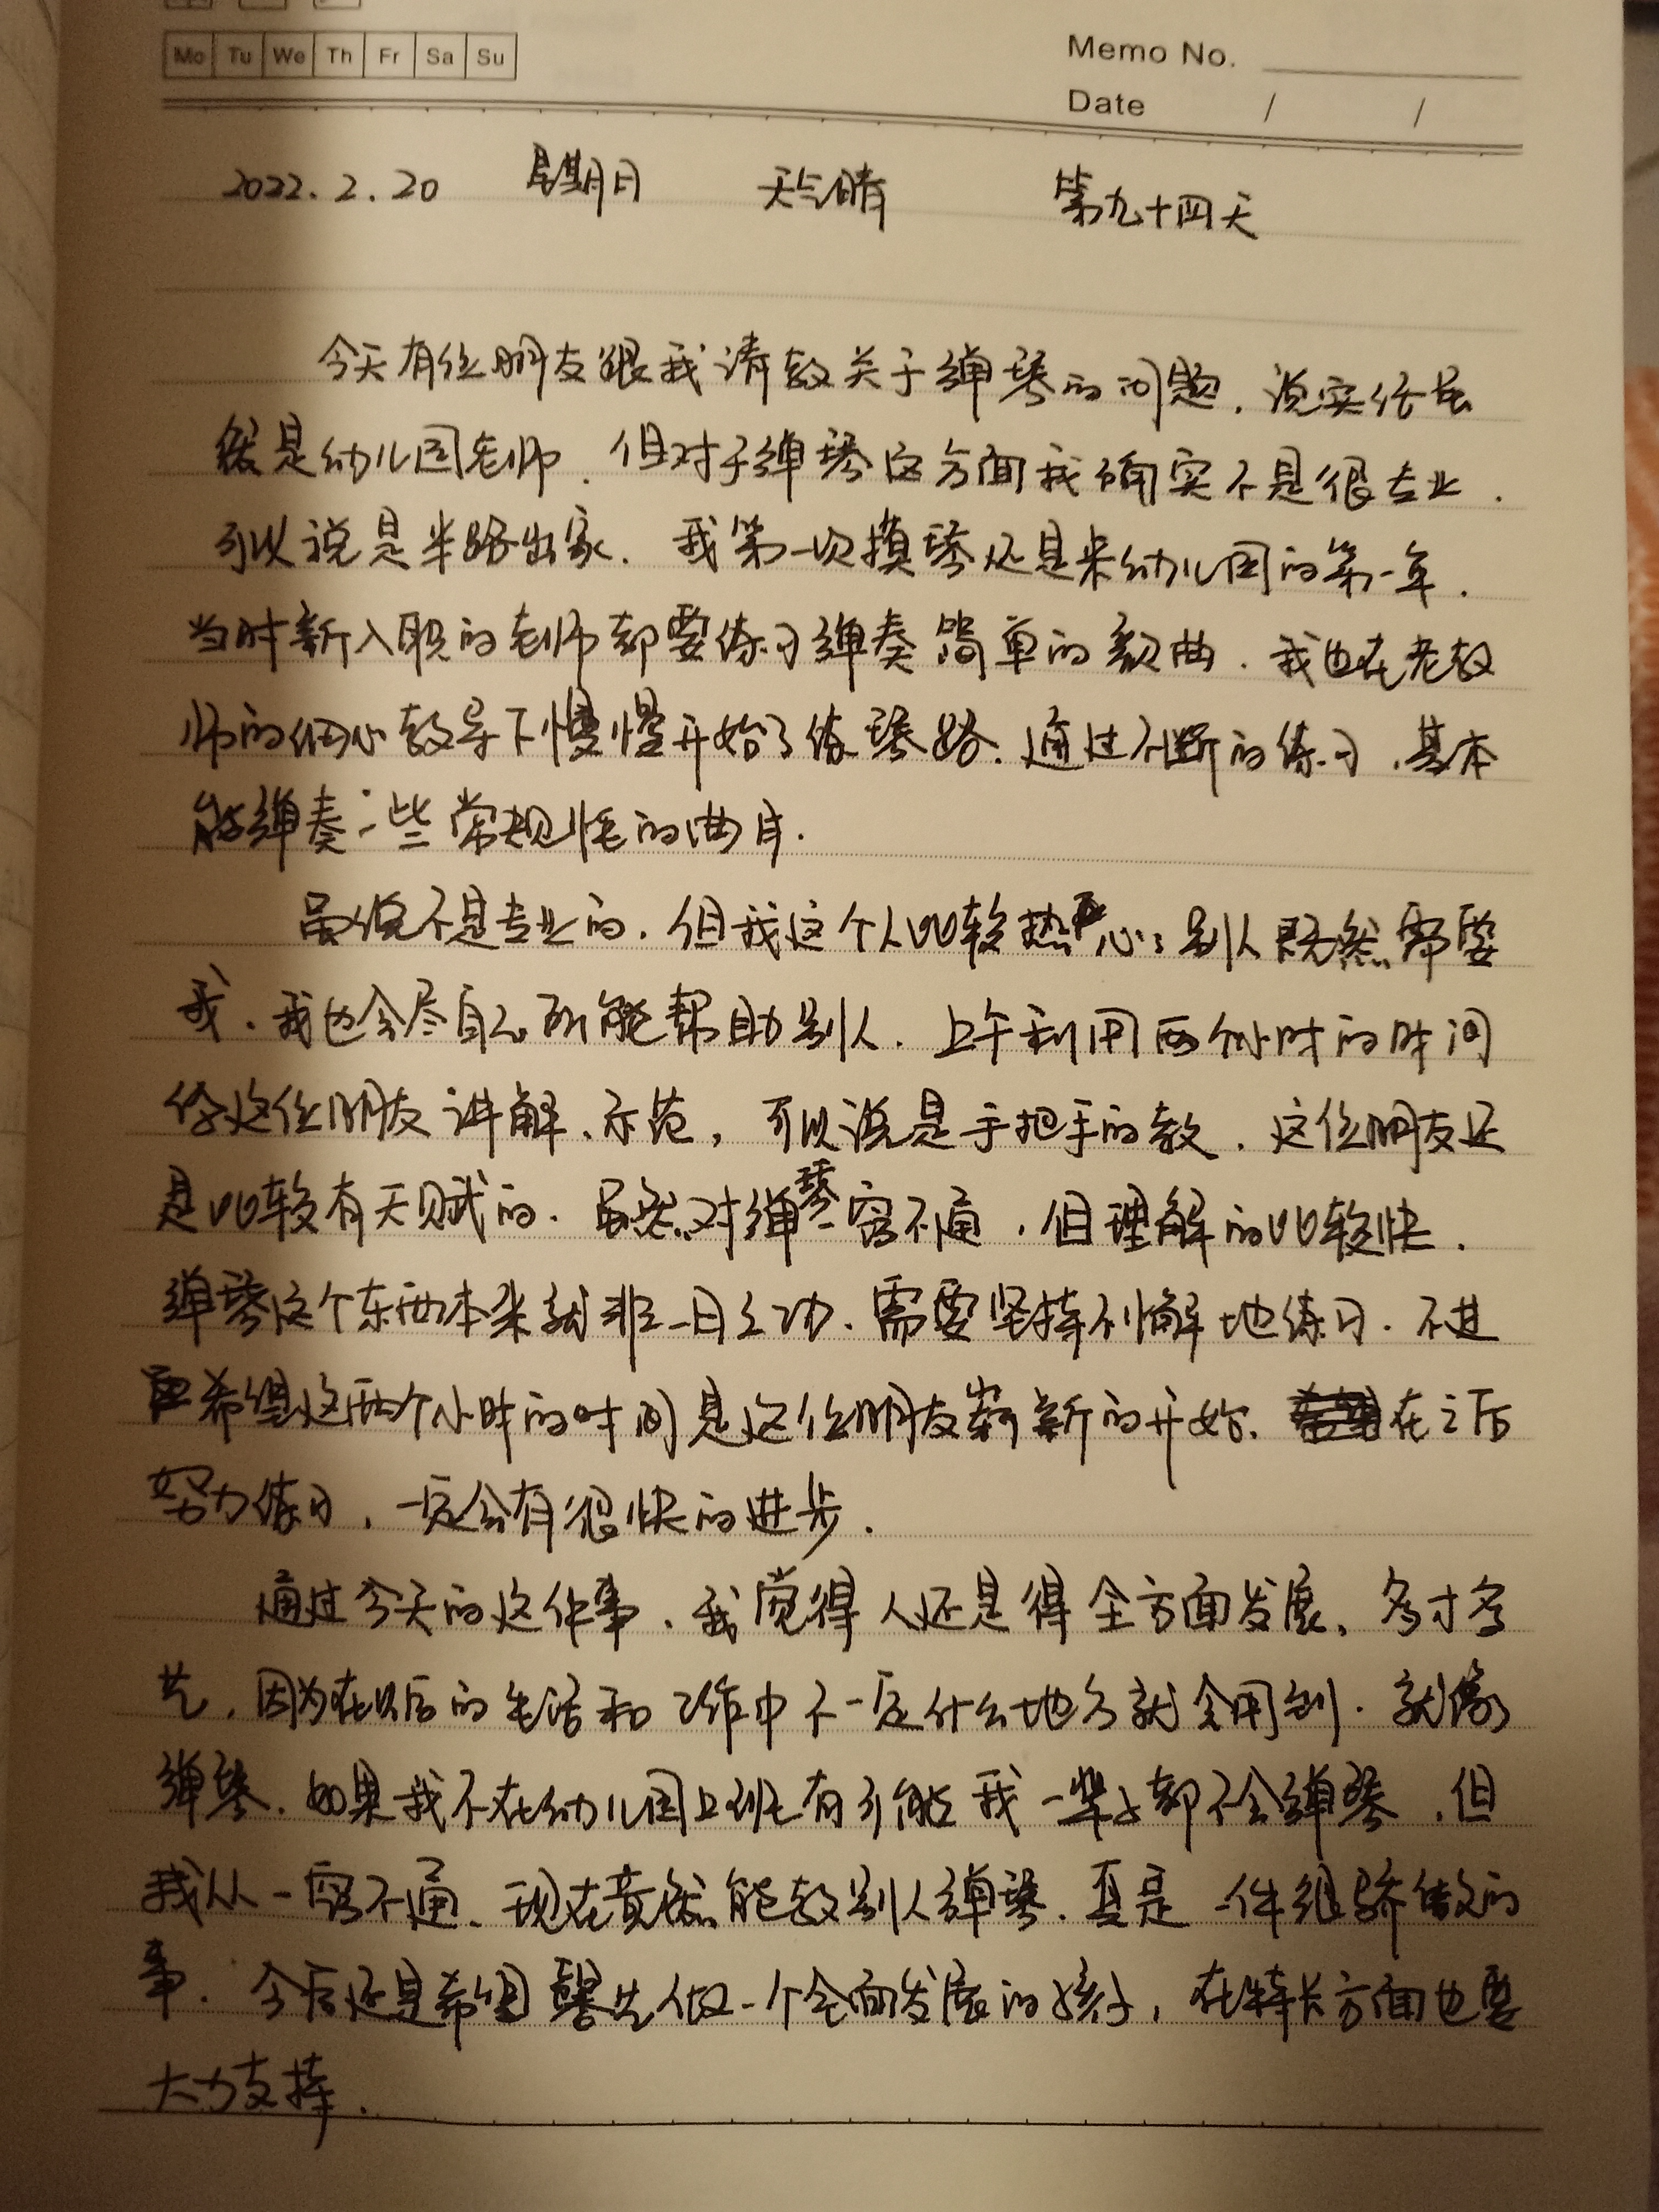 Mo Tu We Th Fr Sa Su
Memo No.
Date / /
2022.2.20 星期日 天气晴 第九十四天
今天有位朋友跟我请教关于弹琴的问题，说实话虽
然是幼儿园老师，但对于弹琴这方面我确实不是很专业，
可以说是半路出家，我第一次摸琴还是来幼儿园的第一年，
当时新入职的老师都要练习弹奏简单的歌曲，我也在老教
师的细心教导下慢慢开始了练琴路，通过不断的练习，基本
能弹奏一些常规性的曲目.
虽说不是专业的，但我这个人比较热心，别人既然需要
我，我也会尽自己所能帮助别人，上午利用两个小时的时间
给这位朋友讲解、示范，可以说是手把手的教，这位朋友还
是比较有天赋的，虽然对弹琴一窍不通，但理解的比较快，
弹琴这个东西本来就非一日之功，需要坚持不懈地练习，不过
希望这两个小时的时间是这位朋友崭新的开始，在之后
努力练习，一定会有很快的进步.
通过今天的这件事，我觉得人还是得全方面发展，多才多
艺，因为在以后的生活和工作中不一定什么地方就会用到，就像
弹琴，如果我不在幼儿园上班有可能我一辈子都不会弹琴，但
我从一窍不通，现在竟然能教别人弹琴，真是一件很骄傲的
事，今后还是希望馨艺做一个全面发展的孩子，在特长方面也要
大力支持.